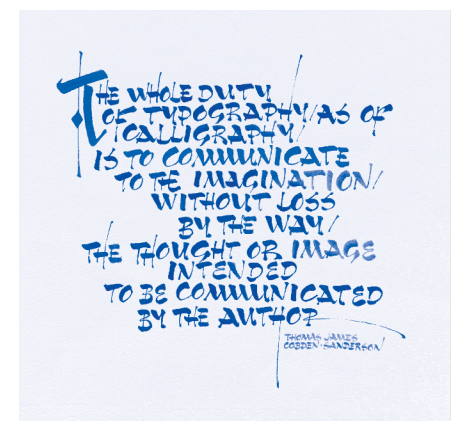 THE WHOLE DUTY
OF TYPOGRAPHY/AS OF
CALLIGRAPHY/
IS TO COMMUNICATE
TO THE IMAGINATION/
WITHOUT LOSS
BY THE WAY/
THE THOUGHT OR IMAGE
INTENDED
TO BE COMMUNICATED
BY THE AUTHOR
THOMAS JAMES
COBDEN-SANDERSON